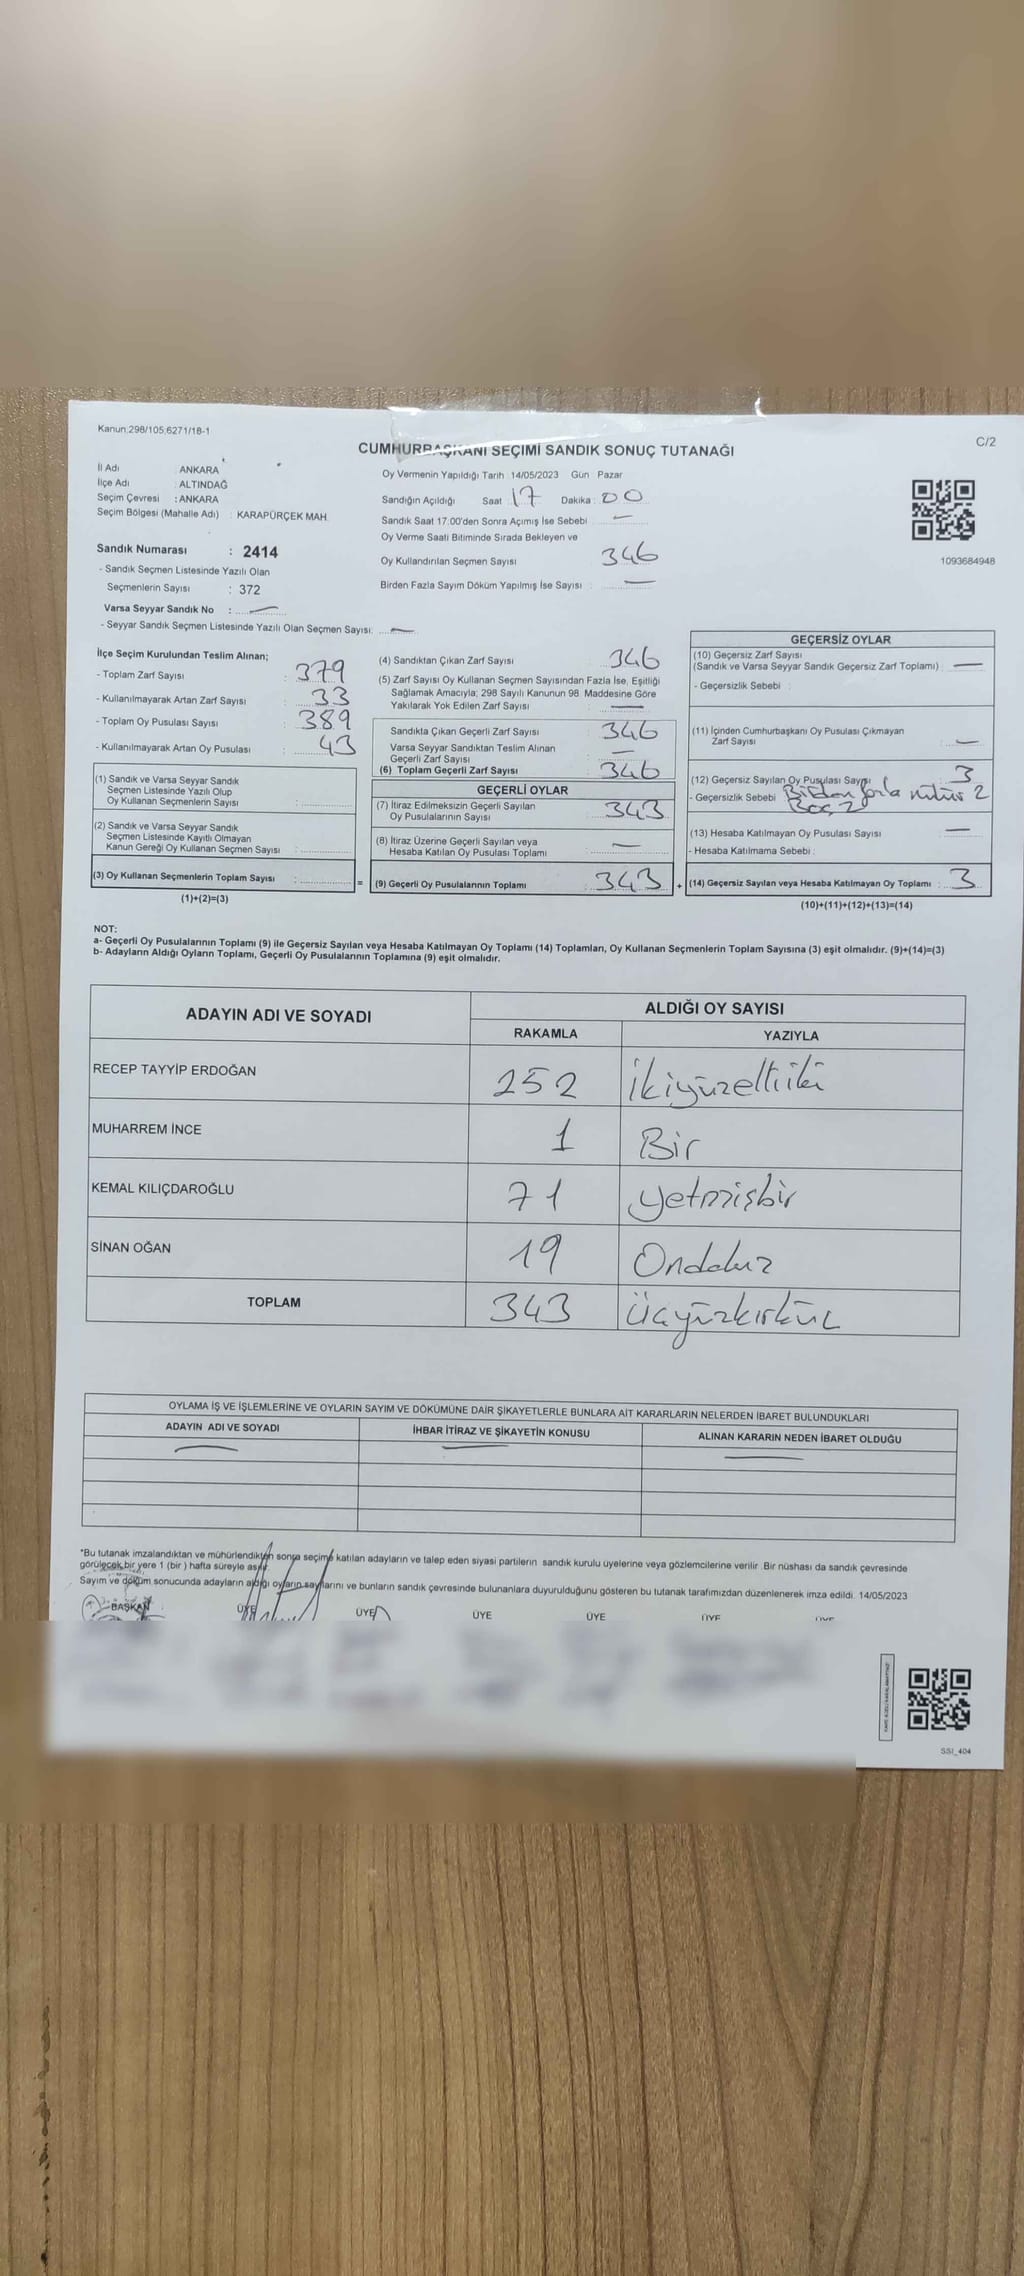 Kanun:298/105;6271/18-1
C/2
CUMHURBAŞKANI SEÇİMİ SANDIK SONUÇ TUTANAĞI
İl Adı : ANKARA
İlçe Adı : ALTINDAĞ
Seçim Çevresi : ANKARA
Seçim Bölgesi (Mahalle Adı) : KARAPÜRÇEK MAH.
Oy Vermenin Yapıldığı Tarih : 14/05/2023 Gün : Pazar
Sandığın Açıldığı Saat : 17 Dakika : 00
Sandık Saat 17:00'den Sonra Açımış İse Sebebi : —
Oy Verme Saati Bitiminde Sırada Bekleyen ve
Oy Kullandırılan Seçmen Sayısı : 346
Birden Fazla Sayım Döküm Yapılmış İse Sayısı : —
1093684948
Sandık Numarası : 2414
- Sandık Seçmen Listesinde Yazılı Olan
Seçmenlerin Sayısı : 372
Varsa Seyyar Sandık No : —
- Seyyar Sandık Seçmen Listesinde Yazılı Olan Seçmen Sayısı: —
İlçe Seçim Kurulundan Teslim Alınan;
- Toplam Zarf Sayısı : 379
- Kullanılmayarak Artan Zarf Sayısı : 33
- Toplam Oy Pusulası Sayısı : 389
- Kullanılmayarak Artan Oy Pusulası : 43
(1) Sandık ve Varsa Seyyar Sandık
Seçmen Listesinde Yazılı Olup
Oy Kullanan Seçmenlerin Sayısı :
(2) Sandık ve Varsa Seyyar Sandık
Seçmen Listesinde Kayıtlı Olmayan
Kanun Gereği Oy Kullanan Seçmen Sayısı :
(3) Oy Kullanan Seçmenlerin Toplam Sayısı :
(1)+(2)=(3)
(4) Sandıktan Çıkan Zarf Sayısı : 346
(5) Zarf Sayısı Oy Kullanan Seçmen Sayısından Fazla İse, Eşitliği
Sağlamak Amacıyla; 298 Sayılı Kanunun 98. Maddesine Göre
Yakılarak Yok Edilen Zarf Sayısı : —
Sandıkta Çıkan Geçerli Zarf Sayısı : 346
Varsa Seyyar Sandıktan Teslim Alınan
Geçerli Zarf Sayısı : —
(6) Toplam Geçerli Zarf Sayısı : 346
GEÇERLİ OYLAR
(7) İtiraz Edilmeksizin Geçerli Sayılan
Oy Pusulalarının Sayısı : 343
(8) İtiraz Üzerine Geçerli Sayılan veya
Hesaba Katılan Oy Pusulası Toplamı : —
= (9) Geçerli Oy Pusulalarının Toplamı : 343
GEÇERSİZ OYLAR
(10) Geçersiz Zarf Sayısı
(Sandık ve Varsa Seyyar Sandık Geçersiz Zarf Toplamı) : —
- Geçersizlik Sebebi :
(11) İçinden Cumhurbaşkanı Oy Pusulası Çıkmayan
Zarf Sayısı : —
(12) Geçersiz Sayılan Oy Pusulası Sayısı : 3
- Geçersizlik Sebebi : Birden fazla mühür 2
Boş
(13) Hesaba Katılmayan Oy Pusulası Sayısı : —
- Hesaba Katılmama Sebebi :
+ (14) Geçersiz Sayılan veya Hesaba Katılmayan Oy Toplamı : 3
(10)+(11)+(12)+(13)=(14)
NOT:
a- Geçerli Oy Pusulalarının Toplamı (9) ile Geçersiz Sayılan veya Hesaba Katılmayan Oy Toplamı (14) Toplamları, Oy Kullanan Seçmenlerin Toplam Sayısına (3) eşit olmalıdır. (9)+(14)=(3)
b- Adayların Aldığı Oyların Toplamı, Geçerli Oy Pusulalarının Toplamına (9) eşit olmalıdır.
ADAYIN ADI VE SOYADI
ALDIĞI OY SAYISI
RAKAMLA YAZIYLA
RECEP TAYYİP ERDOĞAN 252 İkiyüzelliiki
MUHARREM İNCE 1 Bir
KEMAL KILIÇDAROĞLU 71 yetmişbir
SİNAN OĞAN 19 Ondokuz
TOPLAM 343 Üçyüzkırküç
OYLAMA İŞ VE İŞLEMLERİNE VE OYLARIN SAYIM VE DÖKÜMÜNE DAİR ŞİKAYETLERLE BUNLARA AİT KARARLARIN NELERDEN İBARET BULUNDUKLARI
ADAYIN ADI VE SOYADI İHBAR İTİRAZ VE ŞİKAYETİN KONUSU ALINAN KARARIN NEDEN İBARET OLDUĞU
— — —
*Bu tutanak imzalandıktan ve mühürlendikten sonra seçime katılan adayların ve talep eden siyasi partilerin sandık kurulu üyelerine veya gözlemcilerine verilir. Bir nüshası da sandık çevresinde
görülecek bir yere 1 (bir ) hafta süreyle asılır.
Sayım ve döküm sonucunda adayların aldığı oyların sayılarını ve bunların sandık çevresinde bulunanlara duyurulduğunu gösteren bu tutanak tarafımızdan düzenlenerek imza edildi. 14/05/2023
BAŞKAN ÜYE ÜYE ÜYE ÜYE ÜYE ÜYE
SSI_404